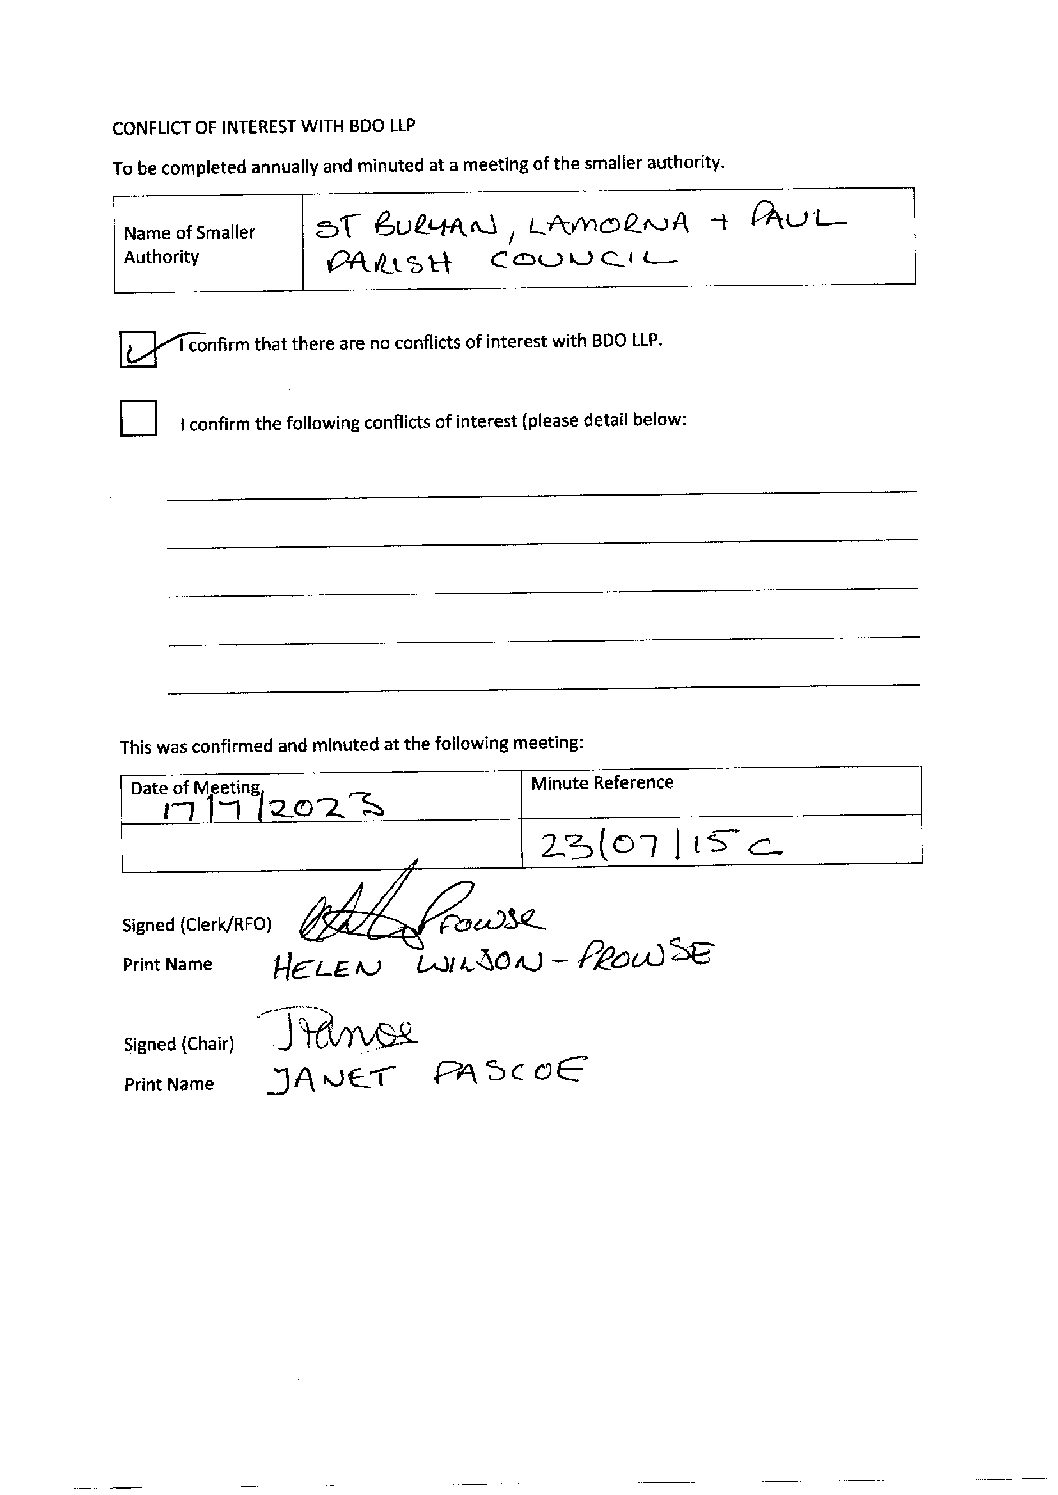 CONFLICT OF INTEREST WITH BDO LLP
To be completed annually and minuted at a meeting of the smaller authority.
Name of Smaller Authority
ST BURYAN, LAMORNA + PAUL
PARISH COUNCIL
I confirm that there are no conflicts of interest with BDO LLP.
I confirm the following conflicts of interest (please detail below:
This was confirmed and minuted at the following meeting:
Date of Meeting
17/7/2023
Minute Reference
23/07/15c
Signed (Clerk/RFO) Prowse
Print Name HELEN WILSON-PROWSE
Signed (Chair)
Print Name JANET PASCOE